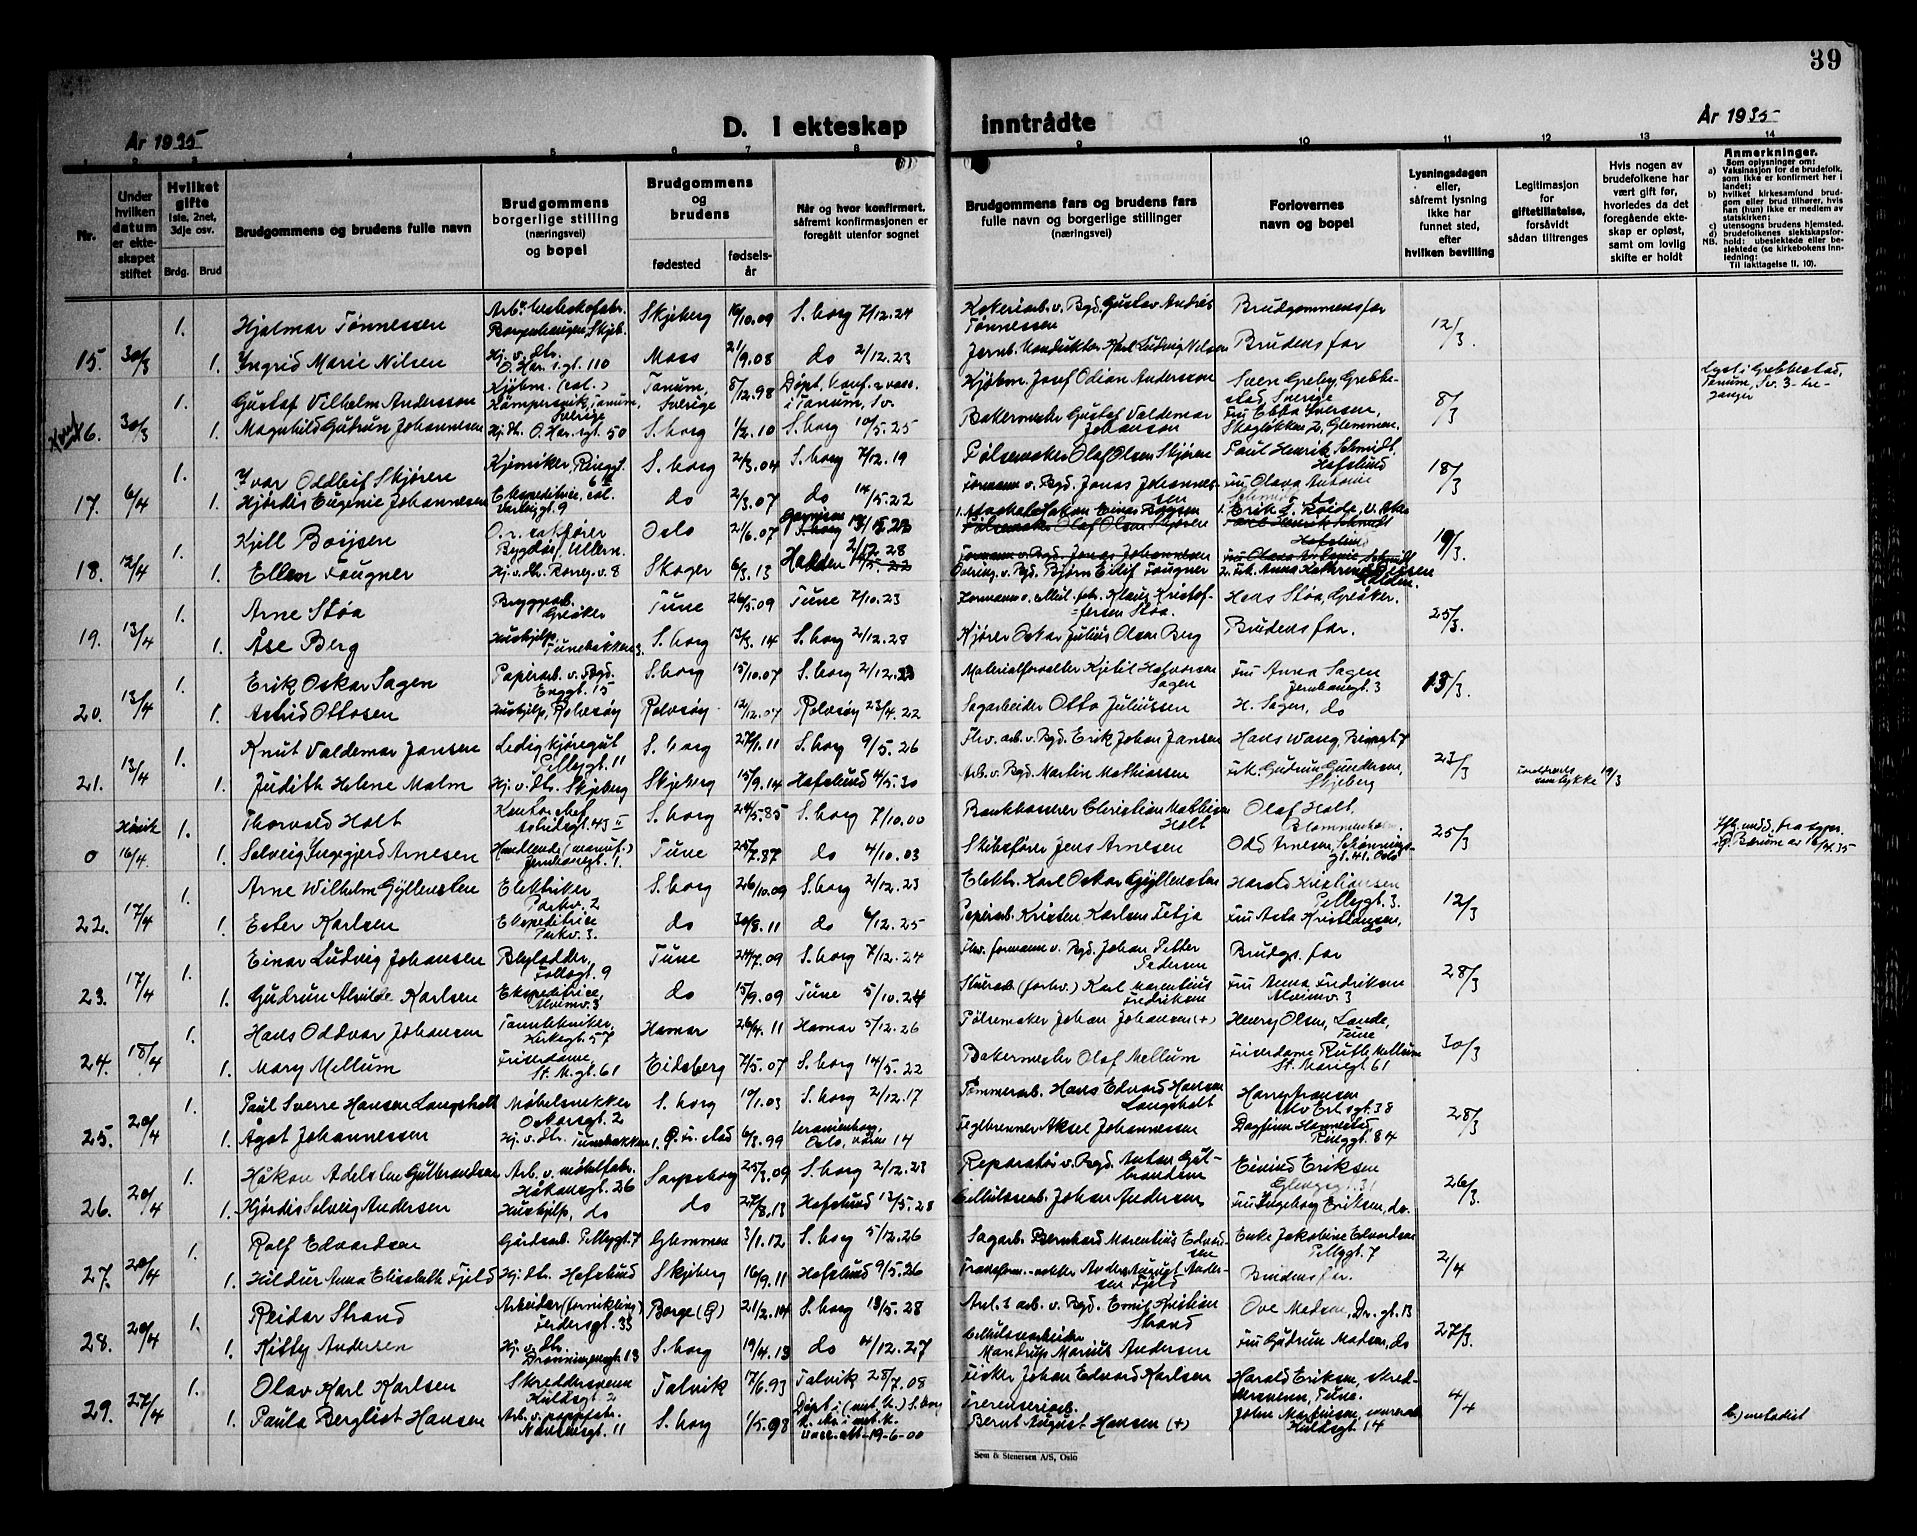 39
År 1935
D. I ekteskap
inntrådte
År 1935
1 2 3 4 5 6 7 8 9 10 11 12 13 14
Nr.
Under hvilken datum er ekteskapet stiftet
Hvilket gifte
1ste, 2net, 3dje osv.
Brdg. Brud
Brudgommens og brudens fulle navn
Brudgommens borgerlige stilling (næringsvei) og bopel
Brudgommens og brudens
fødested
fødselsår
Når og hvor konfirmert, såfremt konfirmasjonen er foregått utenfor sognet
Brudgommens fars og brudens fars fulle navn og borgerlige stillinger (næringsvei)
Forlovernes navn og bopel
Lysningsdagen eller, såfremt lysning ikke har funnet sted, efter hvilken bevilling
Legitimasjon for giftetillatelse, forsåvidt sådan tiltrenges
Hvis nogen av brudefolkene har vært gift før, hvorledes da det foregående ekteskap er opløst, samt om lovlig skifte er holdt
Anmerkninger.
Som oplysninger om:
a) Vaksinasjon for de brudefolk, som ikke er konfirmert her i landet;
b) hvilket kirkesamfund brudgom eller brud tilhører, hvis han (hun) ikke er medlem av statskirken;
c) utensogns brudens hjemsted.
d) brudefolkenes slektskapsforhold: ubeslektede eller beslektede (se kirkebokens innledning:
NB. Til iakttagelse II, 10).
1. Hjalmar Tønnessen Skjeberg 16/10.09 S.borg 7/12.24 Gustav Andres Tønnessen Brudgommens far 12/3.
15. 30/3 1. Yngrid Marie Nilsen Hj. v. do. O. Har. s.gt. 110 Moss 21/9.08 do 2/12.23 Jernb. konduktør Karl Ludvig Nilsen Brudens far
1. Gustaf Vilhelm Andersson Kjøbm. Tanum, Sverige 8/12.98 Døpt, konf. i Tanum, Sv. Kjøbm. Josef Odian Andersson Sven Greby, Grebbestad, Sverige 8/3 Lyst i Grebbestad, Tanum, Sv. 3 ganger
16. 30/3 1. Magnhild Gudrun Johannesen O. Har. sgt. 50 S.borg 1/2.10 S.borg 10/5.25 Bakermester Gustaf Valdemar Johanson Fru Ebba Iversen, Skogløkken 2, Glemmen.
1. Yvar Oddleif Skjøren S.borg 2/3.04 S.borg 7/12.19 Pølsemaker Olaf Olsen Skjøren Paul Henrik Schmidt, Hafslund 18/3
17. 6/4 1. Hjørdis Eugenie Johannesen do 2/3.07 do 14/5.22 Formann v. Bgd. Jonas Johannessen Fru Olava Antonie Schmidt do
1. Kjell Boysen O.r. sakfører Bygdøy, Ullern. Oslo 21/6.07 1. Erik L.
19/3.
18. 12/4 1. Ellen Fougner Skoger 6/3.13 Halden Bjørn Eilif Fougner Halden.
1. Arne Støa Bryggearb. Greåker Tune 26/5.09 Tune 7/10.23 Klaus Kristoffersen Støa. Hans Støa, Greåker. 25/3.
19. 13/4 1. Åse Berg Hushjelp, Tunebakken 3. S.borg 13/3.14 S.borg 2/12.28 Kjører Oskar Julius Olsen Berg Brudens far.
1. Erik Oskar Sagen Papirarb. v. Bgd. Enggt. 15 S.borg 15/10.07 S.borg 2/12.23 Materialforvalter Kjetil Halvorsen Sagen Fru Anna Sagen Jernbanegt. 3 13/3.
20. 13/4 1. Astrid Ottosen Hushjelp, Rolvsøy Rolvsøy 12/12.07 Rolvsøy 23/4.22 Sagarbeider Otto Juliussen H. Sagen, do
1. Knut Valdemar Jansen Ledig kjøregut Pellygt. 11 S.borg 27/1.11 S.borg 9/5.26 Fhv. arb. v. Bgd. Erik Johan Jansen Hans Wang, 23/3
21. 13/4 1. Judith Helene Malm Hj. v. do. Skjeberg Skjeberg 15/9.14 Hafslund 4/5.30 Arb. v. Bgd. Martin Mathiassen Frk. Gudrun Gundersen, Skjeberg samtykke 19/3
Høvik 1. Thorvald Holt Kontorchef Astridsgt. 43 II S.borg 24/5.85 S.borg 7/10.00 Bankkasserer Christian Mathisen Holt Olaf Holt, Blommenholm. 25/3
0 16/4 1. Solveig Ingegjerd Arnesen Handlende (manuf.) Jernbanegt. 1. Tune 25/7.87 do 4/10.03 Skibsfører Jens Arnesen Odd Arnesen, Oslo Ifl. medd. fra Bærum av 16/4.35
1. Arne Wilhelm Gyllensten Elektriker Parkv. 2 S.borg 26/10.09 S.borg 2/12.23 Elektr. Karl Oskar Gyllensten Harald Kristiansen Pellygt. 3. 12/3
22. 17/4 1. Ester Karlsen Ekspeditrise Parkv. 3. do 30/8.11 do 6/12.25 Papirarb. Kristen Karlsen Fetja Fru Asta Kristiansen, do
1. Einar Ludvig Johansen Follogt. 9 Tune 24/7.09 S.borg 7/12.24 Fhv. formann v. Bgd. Johan Petter Pedersen Brudgs. far 28/3
23. 17/4 1. Gudrun Alvilde Karlsen Ekspeditrise, Alveimv. 3 do 15/9.09 Tune 5/10.24 Karl Marentius Fredriksen Fru Anna Fredriksen Alveimv. 3
1. Hans Oddvar Johansen Tanntekniker, Kirkegt. 57 Hamar 26/4.11 Hamar 5/12.26 Pølsemaker Johan Johansen (+) Henry Olsen, Lande, Tune 30/3
24. 18/4 1. Mary Mellum Friserdame, St. M.gt. 61 Eidsberg 7/5.07 S.borg 14/5.22 Bakermester Olaf Mellum Friserdame Ruth Mellum St. Mariegt. 61
1. Paul Sverre Hansen Langsholt Møbelsnekker Oskarsgt. 2 S.borg 10/1.03 S.borg 2/12.17 Tømmerarb. Hans Edvard Hansen Langsholt Harry Hansen 28/3
25. 20/4 1. Ågot Johannessen Hj. v. do. Tunebakken 1. Fr.stad 6/3.99 Uranienborg, Oslo, våren 14 Teglbrenner Aksel Johannessen Dagfinn Hannestad, Ringgt. 84
1. Håkon Adelsten Gulbrandsen Arb. v. møbelfabr. Håkonsgt. 26 Sarpsborg 25/3.09 S.borg 2/12.23 Reparatør v. Bgd. Anton Gulbrandsen Eivind Eriksen Glengsgt. 31 26/3.
26. 20/4 1. Hjørdis Solveig Andersen Hushjelp, do do 27/8.13 Hafslund 13/5.28 Cellulosearb. Johan Andersen Fru Ingeborg Eriksen, do.
1. Rolf Edvardsen Gårdsarb. Pellygt. 7 Glemmen 3/1.12 S.borg 5/12.26 Sagarb. Bernhard Marentius Edvardsen Enke Jakobine Edvardsen Pellygt. 7 2/4
27. 20/4 1. Hildur Anna Elisabeth Fjeld Hj. do. Hafslund Skjeberg 16/9.11 Hafslund 9/5.26 Anders August Andersen Fjeld Brudens far.
1. Reidar Strand Arbeider (fornikling) Feidersgt. 33 Borge (Ø) 21/2.14 S.borg 13/5.28 Emil Kristian Strand Ove Madsen, Dr. gt. 13 27/3.
28. 20/4 1. Kitty Andersen Hj. v. do. Dronningensgt. 13 S.borg 19/4.13 do 4/12.27 Cellulosearbeider Mandrup Marius Andersen Fru Gudrun Madsen, do
1. Olav Karl Karlsen Skreddersvenn Kuldsgt. 2 Talvik 17/6.93 Talvik 28/7.08 Fisker Johan Edvard Karlsen Harald Eriksen, skreddersvenn, Tune. 4/4
29. 27/4 1. Paula Bergliot Hansen Arb. v. pappfabr. Nansensgt. 11 S.borg 1/5.98 Døpt i (met. k.) S.borg Bernt August Hansen (+) John Martinsen, murerarb. Kuldsgt. 14 b.) metodist
Sem & Stenersen A/S, Oslo